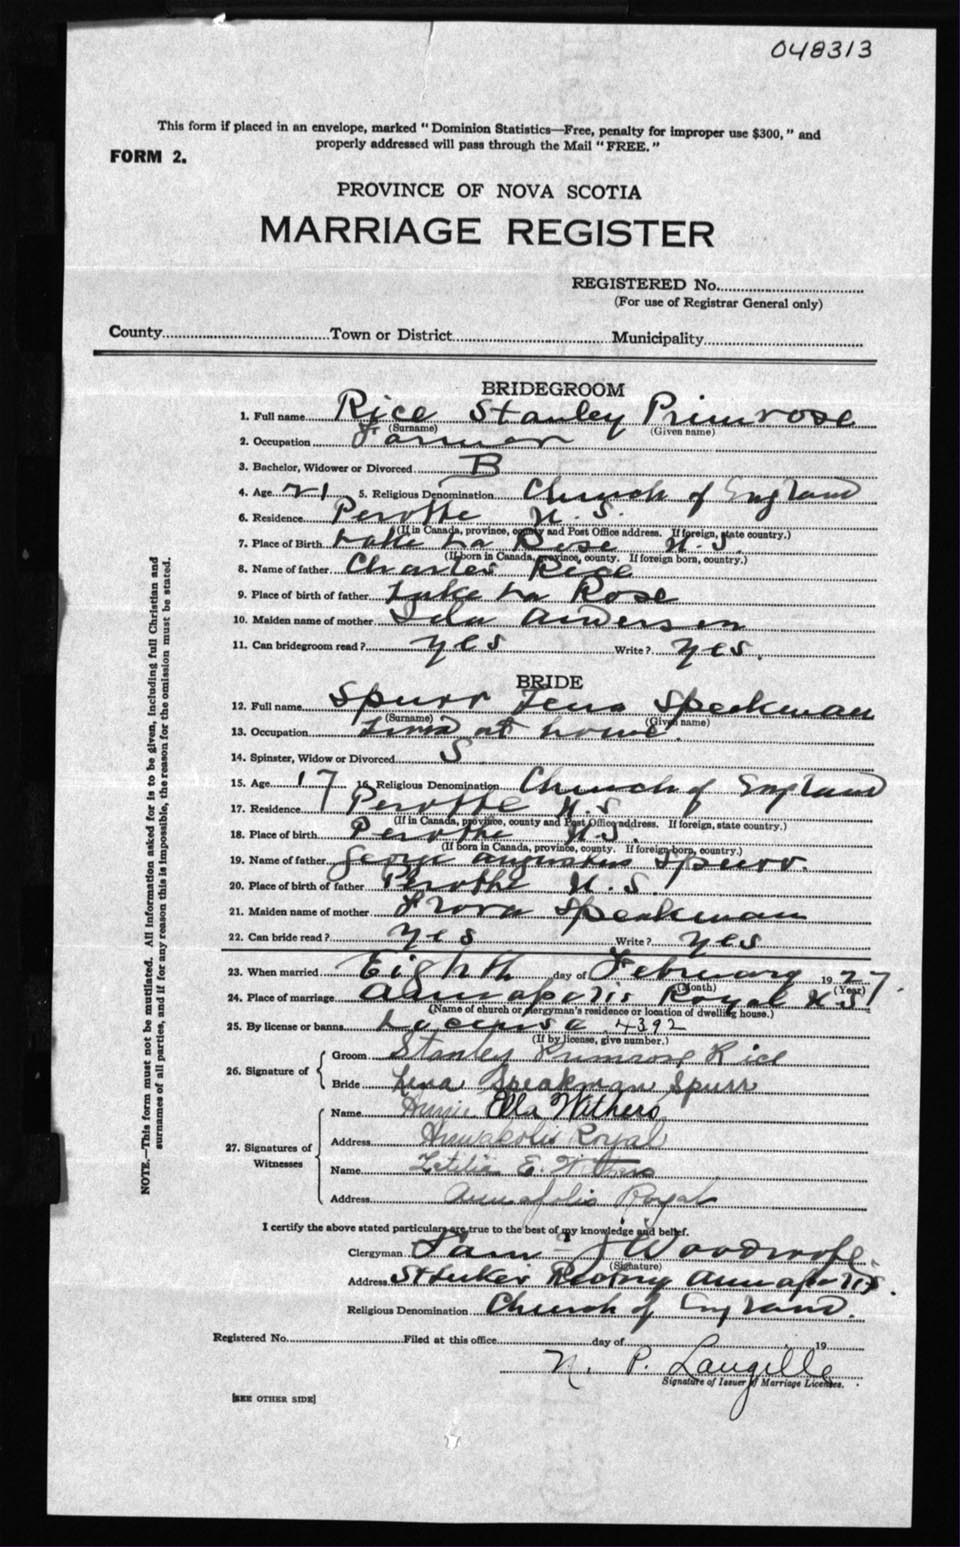 048313
This form if placed in an envelope, marked "Dominion Statistics—Free, penalty for improper use $300," and
properly addressed will pass through the Mail "FREE."
FORM 2.
PROVINCE OF NOVA SCOTIA
MARRIAGE REGISTER
REGISTERED No.
(For use of Registrar General only)
County Town or District Municipality
BRIDEGROOM
1. Full name Rice Stanley Primrose
(Surname) (Given name)
2. Occupation Farmer
3. Bachelor, Widower or Divorced B
4. Age 21 5. Religious Denomination Church of England
6. Residence Perotte N.S.
(If in Canada, province, county and Post Office address. If foreign, state country.)
7. Place of Birth Lake La Rose N.S.
(If born in Canada, province, county. If foreign born, country.)
8. Name of father Charles Rice
9. Place of birth of father Lake La Rose
10. Maiden name of mother Ida Anderson
11. Can bridegroom read? yes Write? yes.
BRIDE
12. Full name Spurr Lena Speakman
(Surname) (Given name)
13. Occupation at home.
14. Spinster, Widow or Divorced S
15. Age 17 16. Religious Denomination Church of England
17. Residence Perotte N.S.
(If in Canada, province, county and Post Office address. If foreign, state country.)
18. Place of birth Perotte N.S.
(If born in Canada, province, county. If foreign born, country.)
19. Name of father George Augustus Spurr.
20. Place of birth of father Perotte N.S.
21. Maiden name of mother Flora Speakman
22. Can bride read? yes Write? yes
23. When married Eighth day of February 1927.
(Month) (Year)
24. Place of marriage Annapolis Royal N.S.
(Name of church or clergyman's residence or location of dwelling house.)
25. By license or banns License 4392
(If by license, give number.)
26. Signature of
Groom Stanley Primrose Rice
Bride Lena Speakman Spurr
27. Signatures of Witnesses
Name Annie Ella Withers
Address Annapolis Royal
Name Letitia E. Withers
Address Annapolis Royal
I certify the above stated particulars are true to the best of my knowledge and belief.
Clergyman J Woodroofe.
(Signature)
Address St Luke's Rectory Annapolis.
Religious Denomination Church of England.
Registered No. Filed at this office day of 19
N. P. Langille
Signature of Issuer of Marriage Licenses.
[SEE OTHER SIDE]
NOTE.—This form must not be mutilated. All information asked for is to be given, including full Christian and
surnames of all parties, and if for any reason this is impossible, the reason for the omission must be stated.